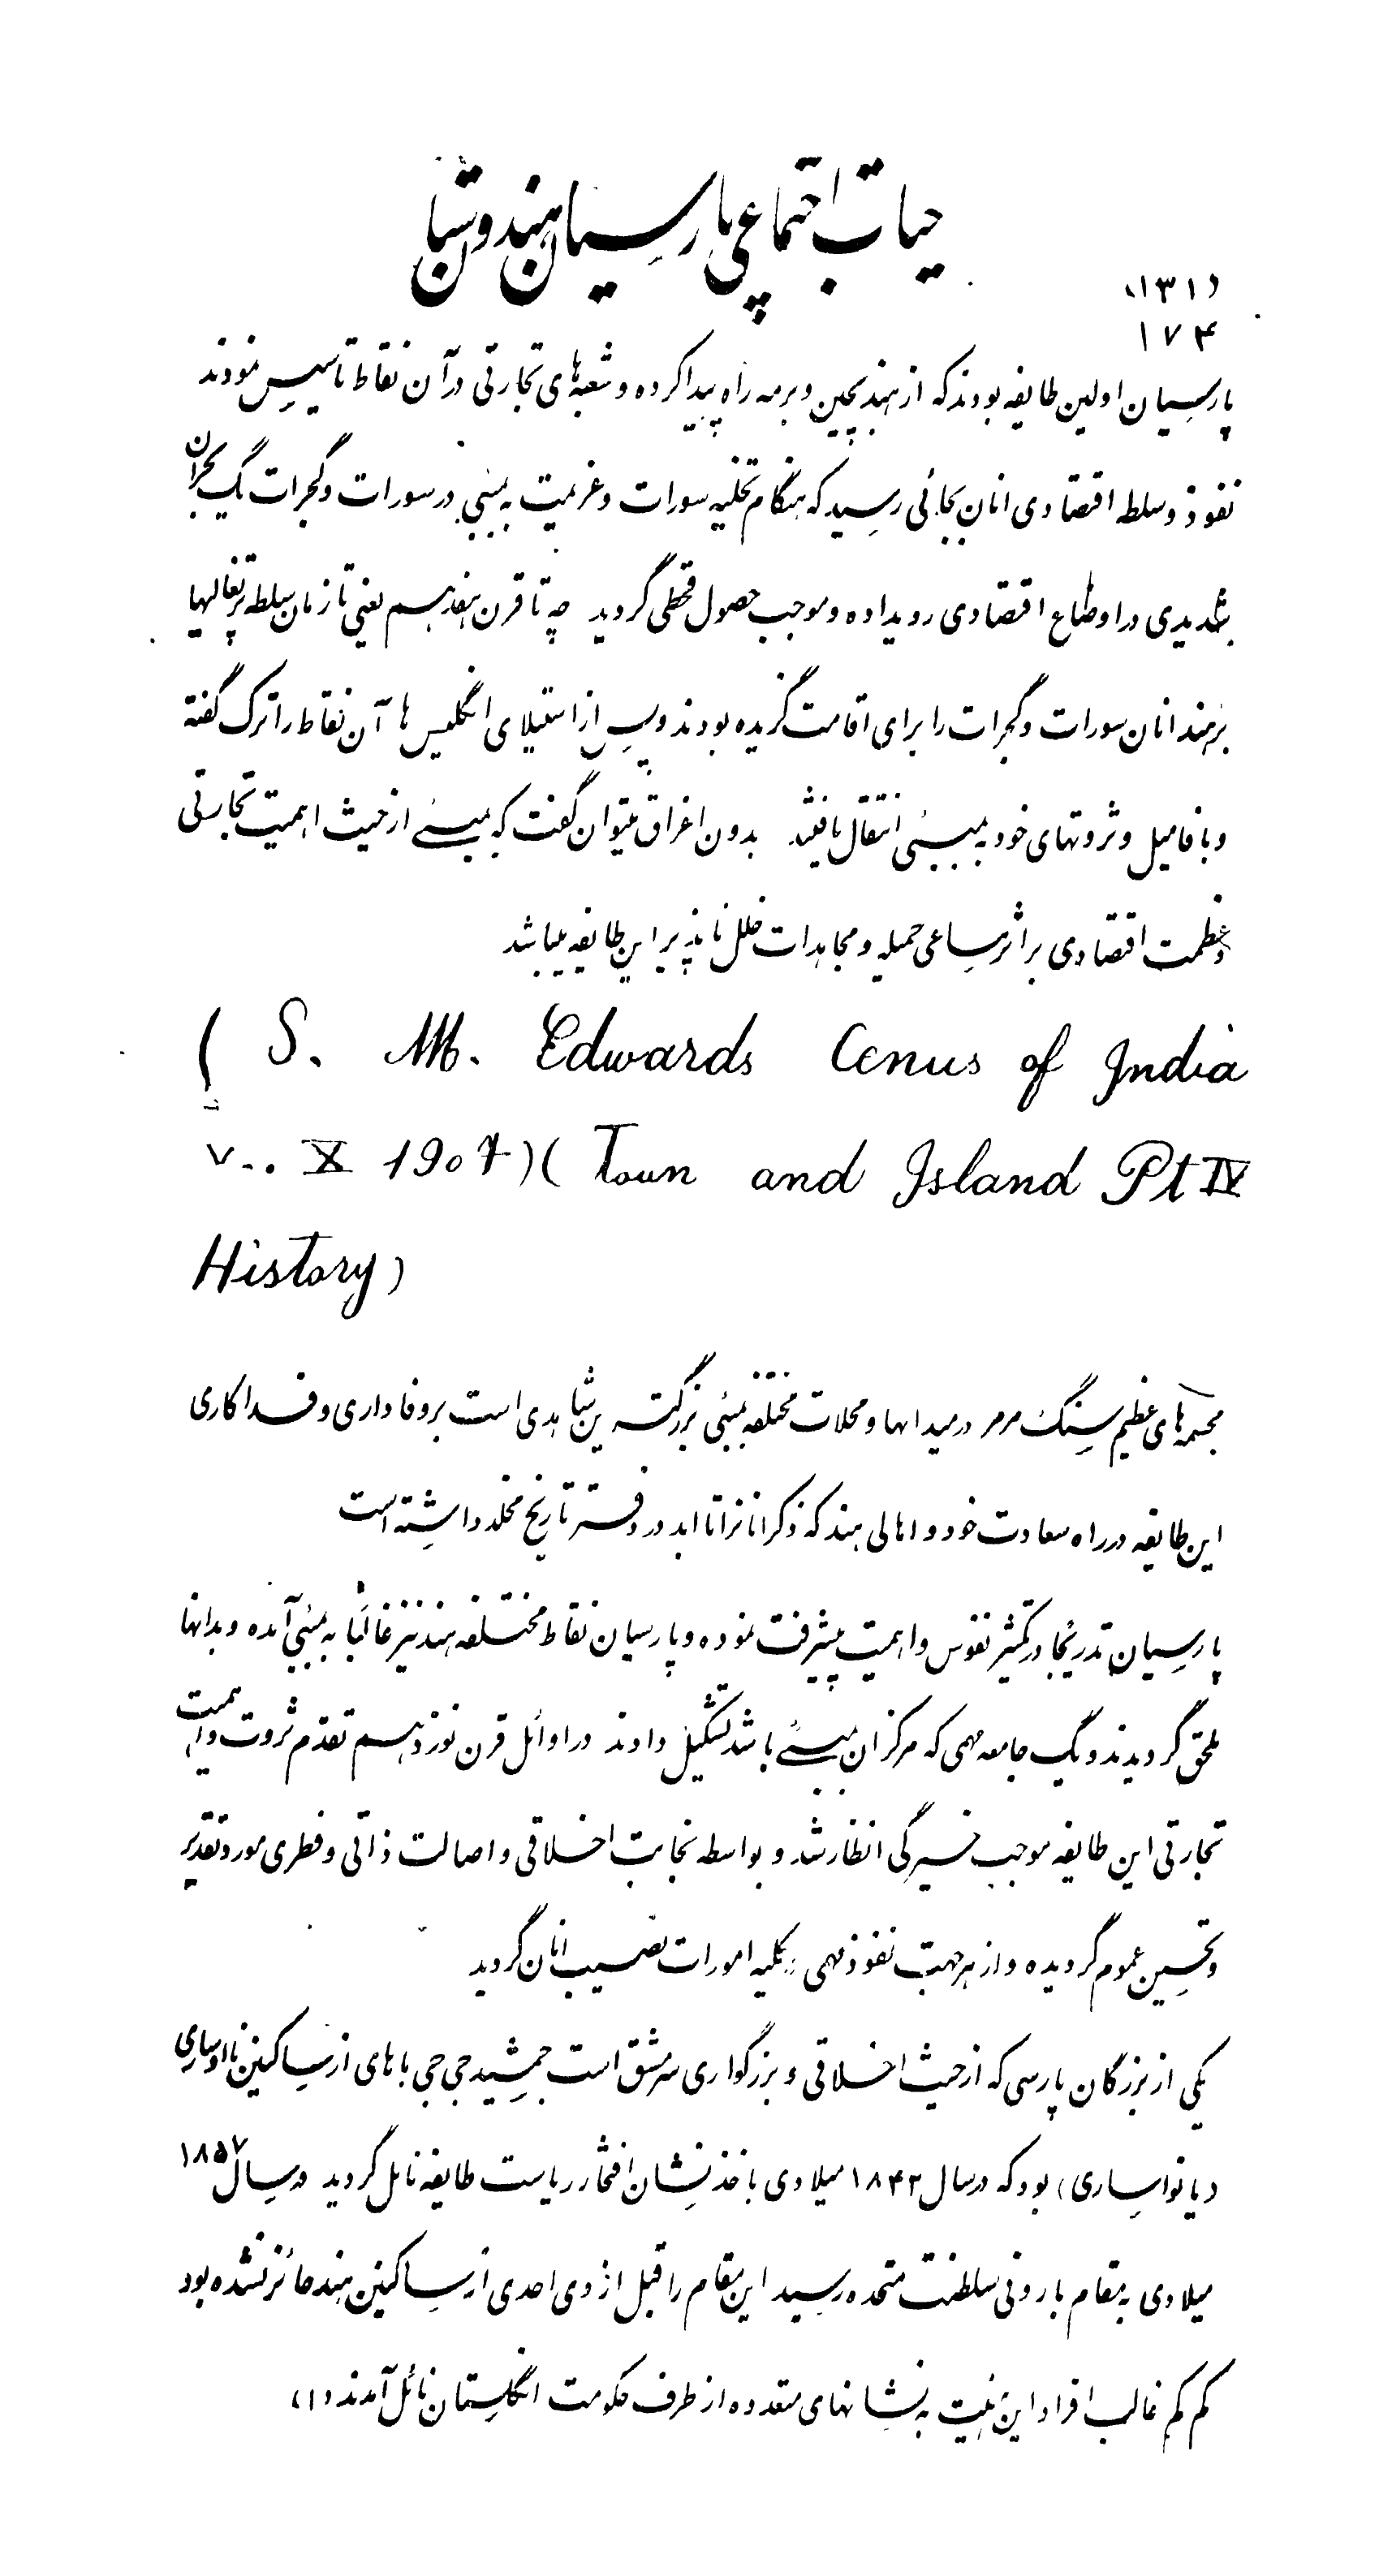 حیات اجتماعی پارسیان هندوستان
(۱۳۱)
۱۷۴
پارسیان اولین طایفه بودند که از هند بچین و برمه راه پیدا کرده و شعبه‌های تجارتی در آن نقاط تاسیس نمودند
نفوذ و سلطه اقتصادی انان بجائی رسید که هنگام تخلیه سورات و عزیمت به بمبئی در سورات و گجرات یک بحران
شدیدی در اوضاع اقتصادی رویداده و موجب حصول قحطی گردید چه تا قرن هفدهم یعنی تا زمان سلطه پرتغالیها
بر هند انان سورات و گجرات را برای اقامت گزیده بودند و پس از استیلای انگلیس ها آن نقاط را ترک گفته
و با فامیل و ثروتهای خود به بمبئی انتقال یافتند بدون اغراق میتوان گفت که بمبئی از حیث اهمیت تجارتی
و عظمت اقتصادی بر اثر مساعی جمیله و مجاهدات خلل ناپذیر این طایفه میباشد
( S. M. Edwards Cenus of India
V.. X 1907) ( Toun and Island Pt IV
History)
مجسمه‌های عظیم سنگ مرمر در میدانها و محلات مختلفه بمبئی بزرگترین شاهدی است بر وفاداری و فداکاری
این طایفه در راه سعادت خود و اهالی هند که ذکر انانرا تا ابد در دفتر تاریخ مخلد داشته است
پارسیان تدریجا در تکثیر نفوس و اهمیت پیشرفت نموده و پارسیان نقاط مختلفه هند نیز غالبا به بمبئی آمده و بدانها
ملحق گردیدند و یک جامعه مهمی که مرکز ان بمبئی باشد تشکیل دادند در اوائل قرن نوزدهم تقدم ثروت و اهمیت
تجارتی این طایفه موجب خیرگی انظار شد و بواسطه نجابت اخلاقی و اصالت ذاتی و فطری مورد تقدیر
و تحسین عموم گردیده و از هر جهت نفوذ مهمی در کلیه امورات نصیب انان گردید
یکی از بزرگان پارسی که از حیث اخلاقی و بزرگواری سرمشق است جمشید جی جی باهای از ساکنین نااوساری
(یا نواساری) بود که در سال ۱۸۴۲ میلادی باخذ نشان افتخار ریاست طایفه نایل گردید در سال ۱۸۵۷
میلادی به مقام بارونی سلطنت متحده رسید این مقام را قبل از وی احدی از ساکنین هند حائز نشده بود
کم کم غالب افراد این هیئت به نشانهای متعدده از طرف حکومت انگلستان نائل آمدند (۱)